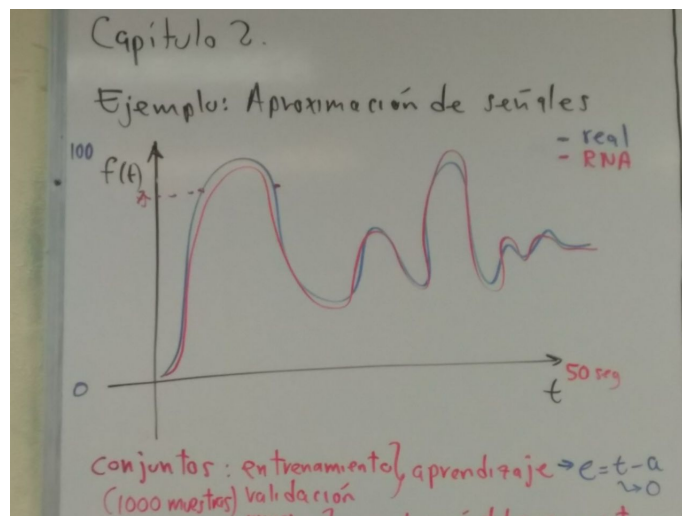 Capítulo 2.
Ejemplo: Aproximación de señales
- real
- RNA
100
f(t)
0
t
50 seg
Conjuntos: entrenamiento, aprendizaje → e = t - a
→ 0
(1000 muestras) validación